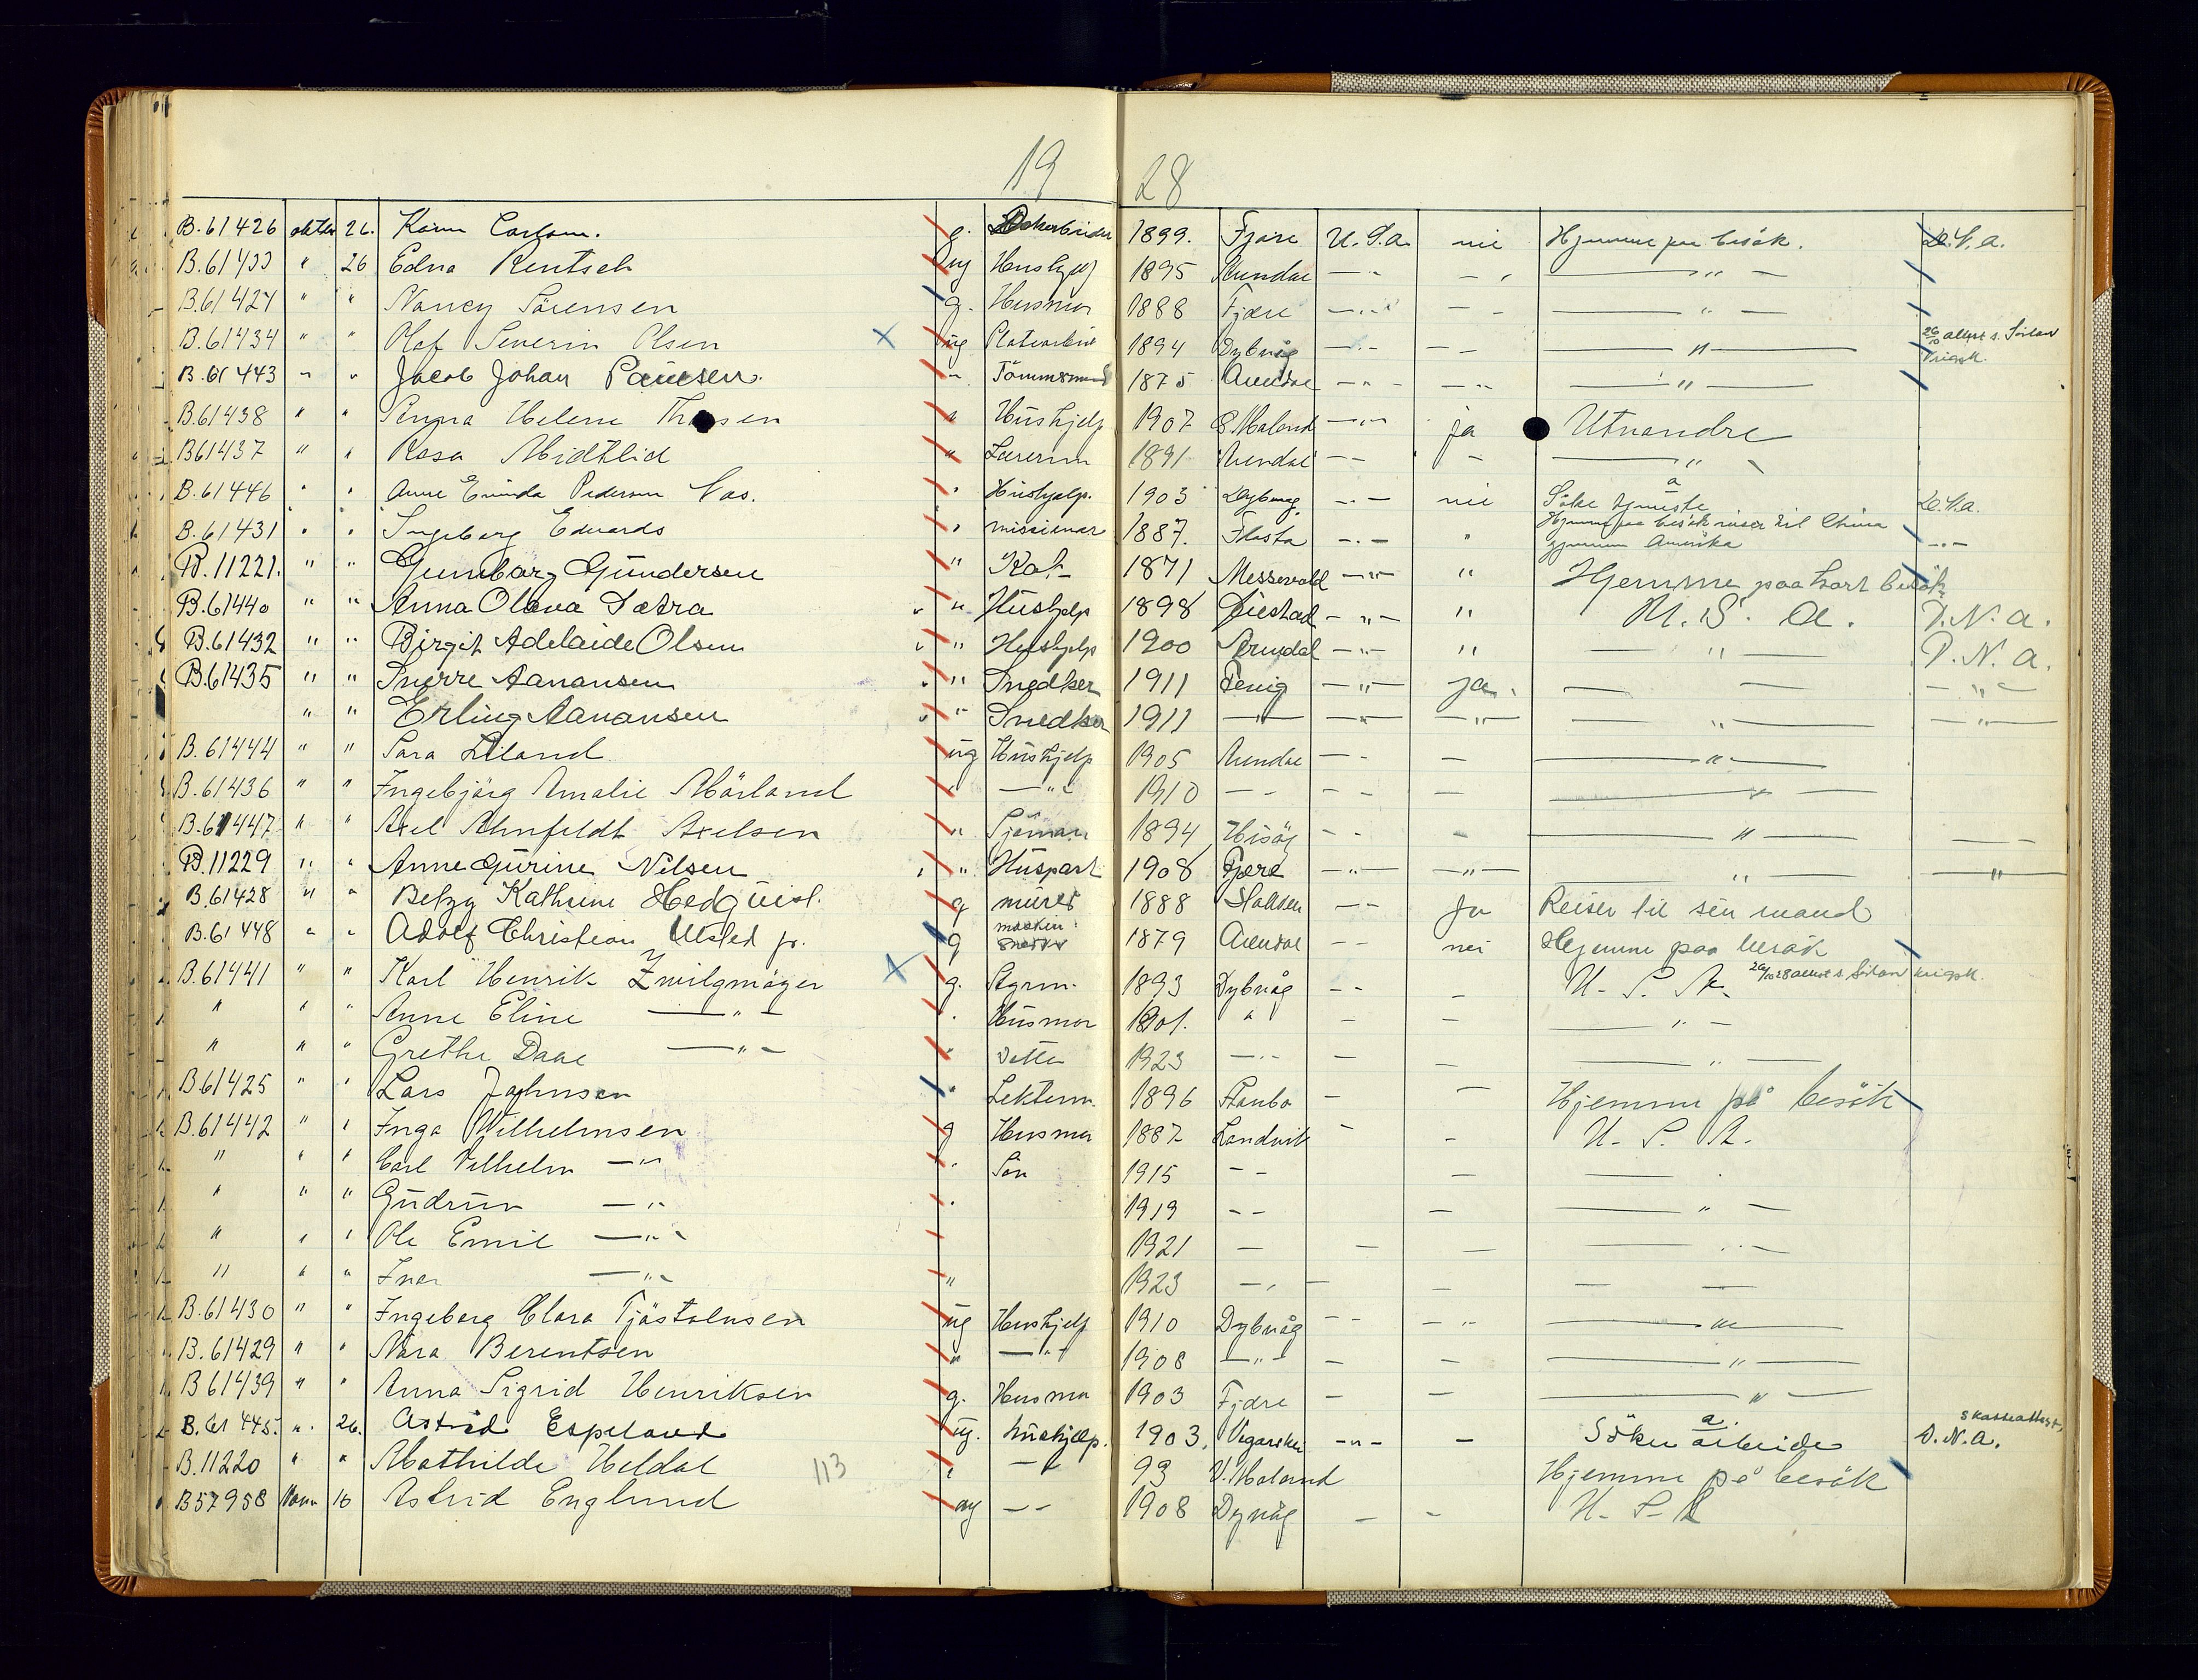 19 28
B.61426 oktbr 26. Karen g. 1899. Fjære U.S.A. nei Hjemme paa besök. D.N.A.
B.61433 " 26 Edna Rentsch ug Hushjelp 1895 Arendal — " — "
B.61427 " " Nancy Sörensen g. Husmor 1888 Fjære — " — — — " —
B.61434 " " Olaf Severin Olsen ug 1894 Dybvåg — " — — — " — 26/10 attest s. Sörlan
Krigsk.
B.61443 " " Jacob Johan Paulsen " Tömmermand 1875 Arendal — " — — " — " —
B.61438 " " Helene " Hushjelp 1907 Ö.Moland — " — ja Utvandre
B61437 " " Rosa Midtlid " Lærerin 1891 Arendal — — " — " —
B.61446 " " Anne Pedersen Vas. " Hushjelp. 1903 Dybvåg. — " — nei Söke tjeneste D.N.A.
B.61431 " " Ingeborg Edwards " missionær 1887. Flosta — " — " Hjemme paa besök reiser til China
gjennem Amerika — " —
B.11221. " " Gunnborg Gundersen " Kok 1871 — " — " Hjemme paa kort besök
B.61440 " " Anna Olava Sætra " Hushjelp 1898 Öiestad — " — " U.S.A. D.N.A.
B.61432 " " Birgit Adelaide Olsen " Hushjelp 1900 Arendal — " — " — " — D.N.A.
B.61435 " " Sverre Aanansen " Snedker 1911 — " — ja. — — — " —
" " Erling Aanansen " Snedker 1911 — " — — " — — " — — " — — " —
B.61444 " " Sara Liland ug Hushjelp 1905 Arendal — " — — " —
B.61436 " " Ingebjörg Amalie Mörland " — " — 1910 — — — — — — " —
B.61447 " " Axel Ahnfeldt Axelsen " Sjöman 1894 Hisöy — — — — " — — —
B.11229 " " Anne Gurine Nilsen " Huspart 1908 Fjære — " — — " — — " — — " —
B.61428 " " Betzy Kathrine Hedquist. g 1888 — — Ja Reiser til sin mand
B.61448 " " Adolf Christian Ulsted jr. g maskin 1879 Arendal — — nei Hjemme paa besök
B.61441 " " Karl Henrik Zwilgmeyer g. Styrm. 1893 Dybvåg — — — U.S.A. 26/10 28 attest s. Sörlan krigsk.
" " " Anne Eline — " — " Husmor 1901. " — — — " —
" " " Grethe Daae — " — " Datter 1923 — " — — — — " —
B.61425 " " Lars Johnsen " 1896 — — Hjemme på besök
B.61442 " " Inga Wilhelmsen g Husmor 1887 Landvik — — U.S.A.
" " " Carl Vilhelm — " — " Sön 1915 — — — —
" " " Gudrun — " — " 1919 — — — — " —
" " " Ole Emil — " — 1921 — — — — " —
" " " Ivar — " — " 1923 — " — — —
B.61430 " " Ingeborg Clara Tjöstolvsen ug Hushjelp 1910 Dybvåg — — — " — " —
B.61429 " " Nora Berentsen " — " — 1908 — " — — — — " —
B 61439 " " Anna Sigrid Henriksen g. Husmor 1903 Fjære — — — " —
B.61445. " 26. Astrid Espeland ug. hushjælp. 1903. Vegårshei — " — — Söker arbeide skatteattest,
D.N.A.
B.11220 " " Mathilde Heldal 113 " — " 93 V.Moland — Hjemme på besök
B57958 Novr 16 Astrid Englund ug — — 1908 Dyvåg — — U.S.A